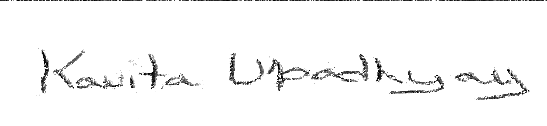 Kavita Upadhyay